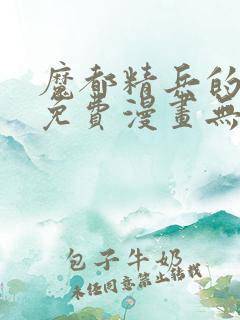 魔都精兵的
免費漫畫無
包子牛奶
未经同意禁止转载